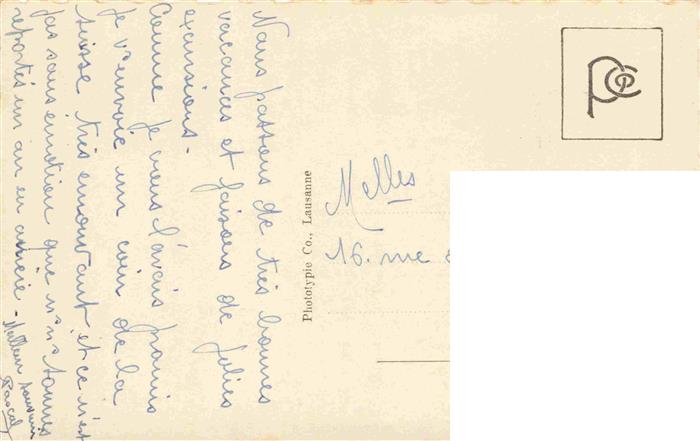 Nous passons de très bonnes
vacances et faisons de jolies
excursions.
Comme je vous l'avais promis
je v's envoie un coin de la
suisse très émouvant et ce n'est
pas sans émotion que n's n's sommes
reportés un an en arrière - Meilleurs souvenirs
Pascal
Phototypie Co., Lausanne
PCo
Melles
16. rue